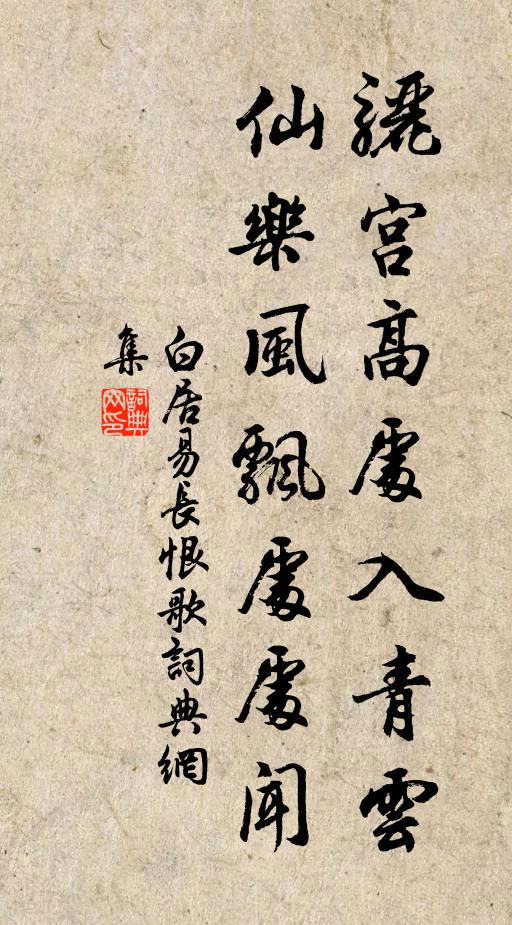 驪宮高處入青雲
仙樂風飄處處聞
白居易長恨歌詞典網
集
詞典
网印